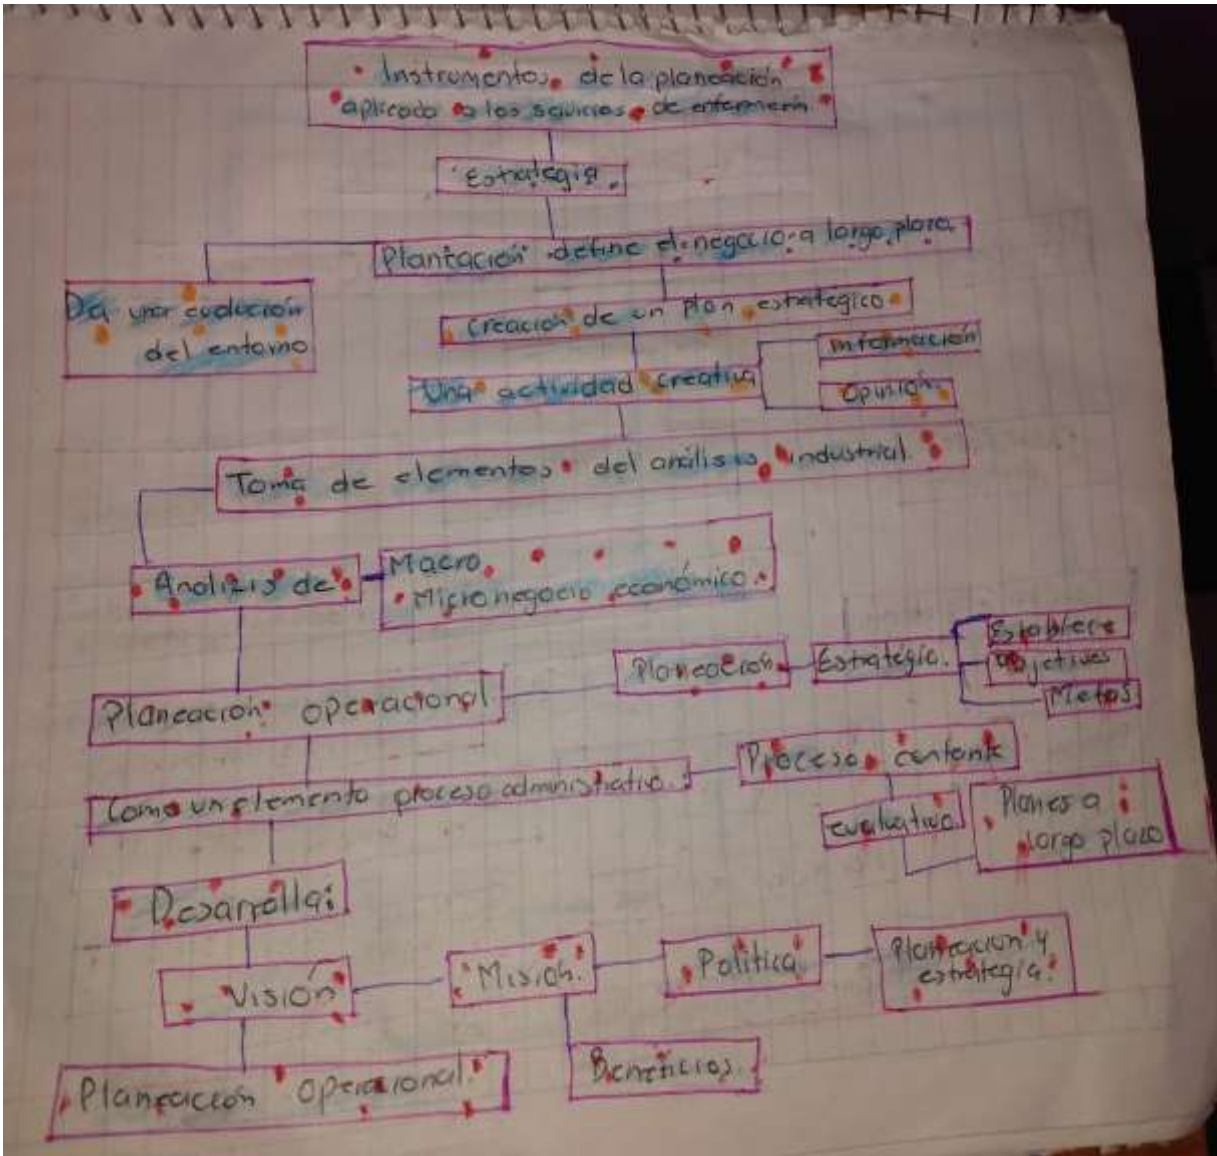 Instrumentos de la planeación
aplicado a los sevicios de enfermería
Estrategia.
Plantación define el negocio a largo plazo.
Da una evolución
del entorno
Creación de un plan estrategico
Una actividad creativa
información
Opinión.
Toma de elementos del análisis industrial.
Analizis de
Macro.
Micronegocio económico.
Planeación
Estrategia.
Establece
Objetivos
Metas
Planeación operacional.
Como un elemento proceso administrativo.
Proceso
evaluativo
Planes a
largo plazo
Desarrolla:
Visión
Misión.
Política
Planeacion y
estrategia.
Beneficios.
Planeación Operacional.